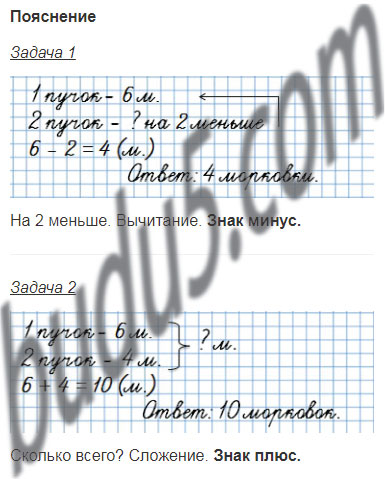 Пояснение
Задача 1
1 пучок - 6 м.
2 пучок - ? на 2 меньше
6 - 2 = 4 (м.)
Ответ: 4 морковки.
На 2 меньше. Вычитание. Знак минус.
Задача 2
1 пучок - 6 м.
2 пучок - 4 м.
? м.
6 + 4 = 10 (м.)
Ответ: 10 морковок.
Сколько всего? Сложение. Знак плюс.
budu5.com